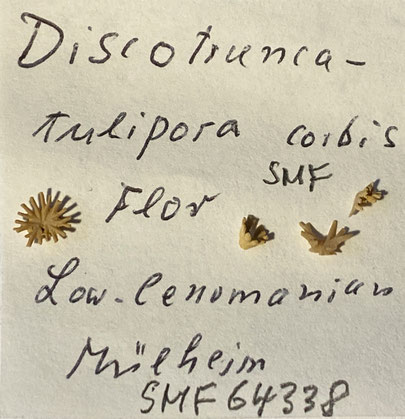 Discotrunca-
tulipora corbis
SMF
Flor
Low. Cenomanian
Mülheim
SMF 64338